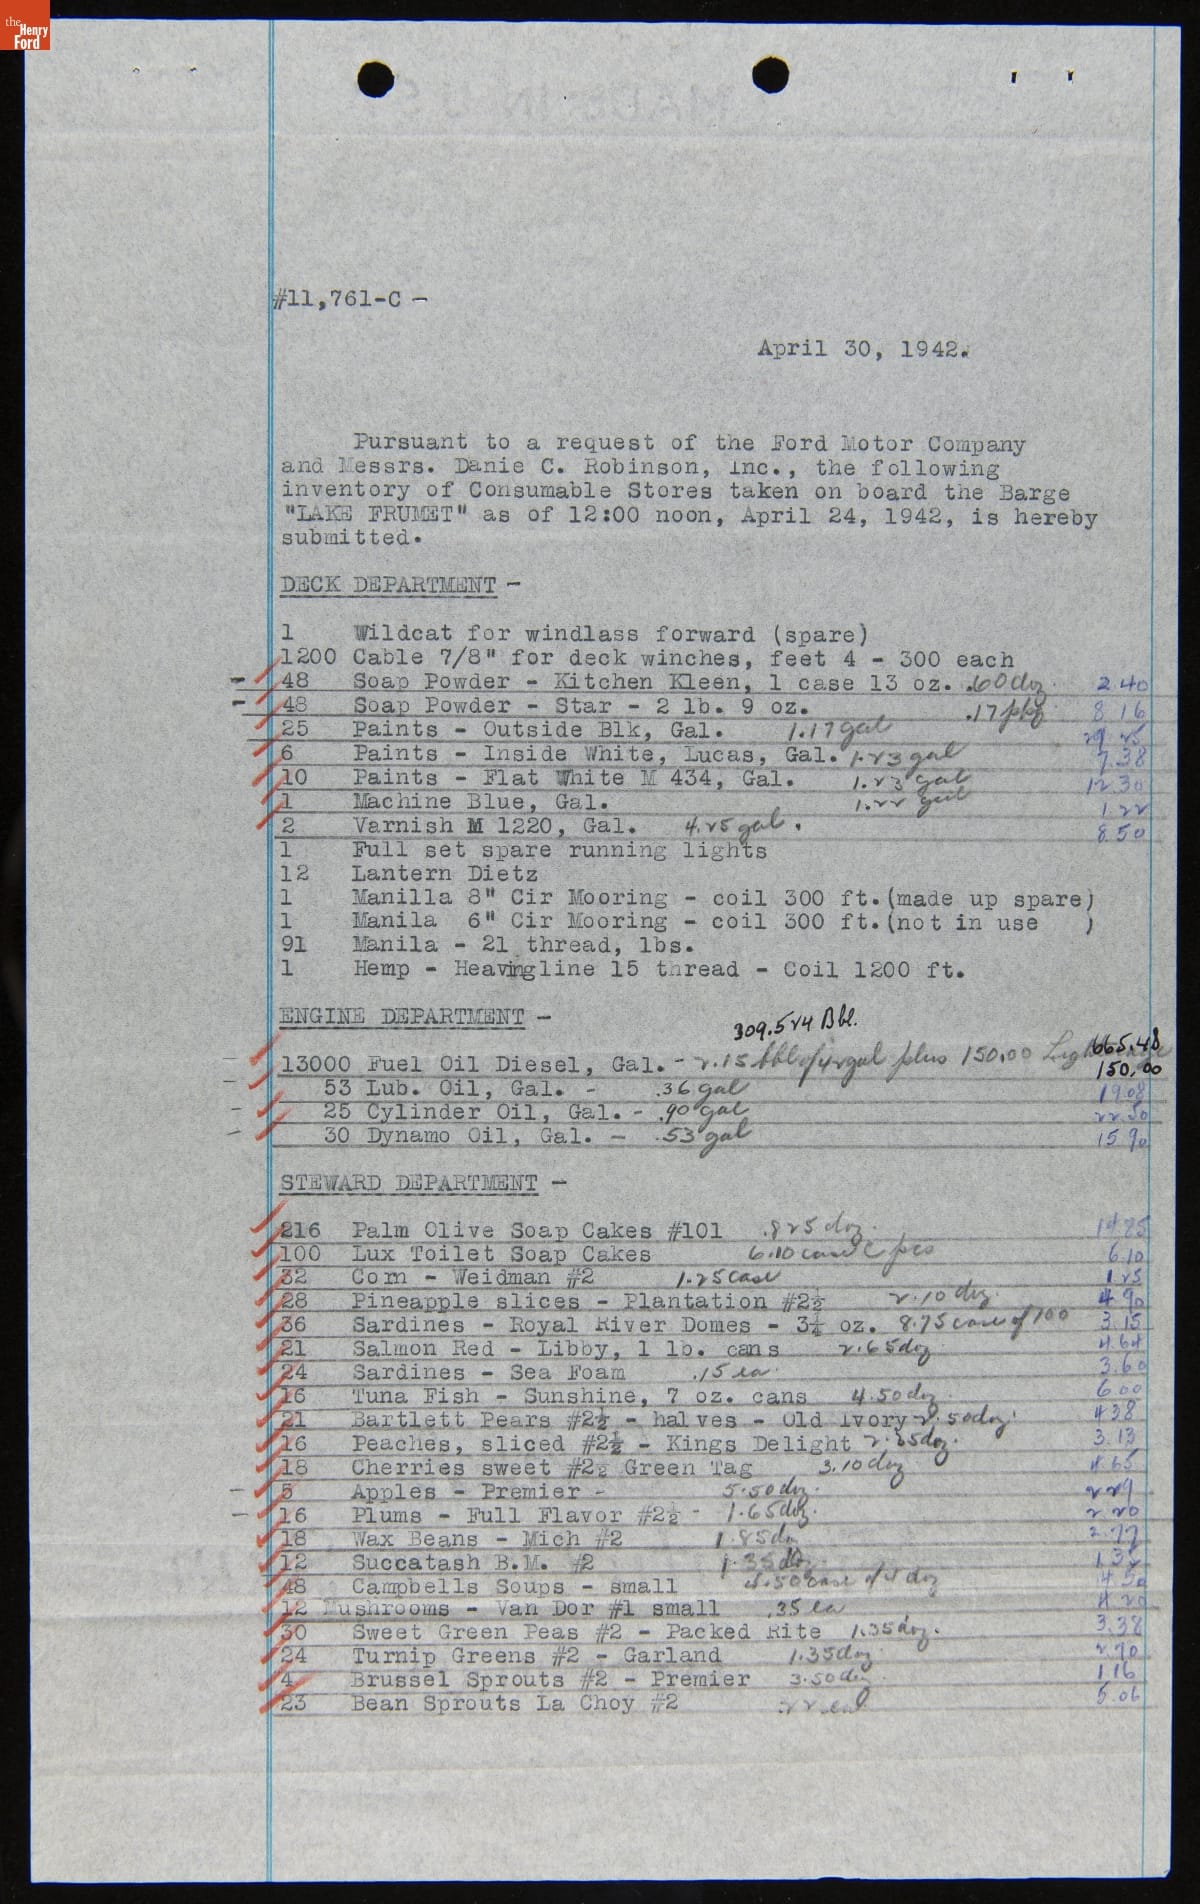 the Henry Ford
MADE IN U S
#11,761-C -
April 30, 1942.
Pursuant to a request of the Ford Motor Company
and Messrs. Danie C. Robinson, Inc., the following
inventory of Consumable Stores taken on board the Barge
"LAKE FRUMET" as of 12:00 noon, April 24, 1942, is hereby
submitted.
DECK DEPARTMENT -
1 Wildcat for windlass forward (spare)
1200 Cable 7/8" for deck winches, feet 4 - 300 each
48 Soap Powder - Kitchen Kleen, 1 case 13 oz. .60 doz. 2.40
48 Soap Powder - Star - 2 lb. 9 oz. .17 pkg 8 16
25 Paints - Outside Blk, Gal. 1.17 gal 29 25
6 Paints - Inside White, Lucas, Gal. 1.23 gal 7.38
10 Paints - Flat White M 434, Gal. 1.23 gal 12.30
1 Machine Blue, Gal. 1.22 gal 1.22
2 Varnish M 1220, Gal. 4.25 gal. 8.50
1 Full set spare running lights
12 Lantern Dietz
1 Manilla 8" Cir Mooring - coil 300 ft.(made up spare)
1 Manila 6" Cir Mooring - coil 300 ft.(not in use )
91 Manila - 21 thread, lbs.
1 Hemp - Heavingline 15 thread - Coil 1200 ft.
ENGINE DEPARTMENT -
309.524 Bbl.
13000 Fuel Oil Diesel, Gal. - 2.15 bbl of 42 gal plus 150.00 665.48
150.00
53 Lub. Oil, Gal. - .36 gal 19.08
25 Cylinder Oil, Gal. - .90 gal 22.50
30 Dynamo Oil, Gal. - .53 gal 15 90
STEWARD DEPARTMENT -
216 Palm Olive Soap Cakes #101 .825 doz. 14.85
100 Lux Toilet Soap Cakes 6.10 case C pcs 6.10
32 Corn - Weidman #2 1.25 case 1.25
28 Pineapple slices - Plantation #2½ 2.10 doz. 4.90
36 Sardines - Royal River Domes - 3¼ oz. 8.75 case of 100 3.15
21 Salmon Red - Libby, 1 lb. cans 2.65 doz. 4.64
24 Sardines - Sea Foam .15 ea. 3.60
16 Tuna Fish - Sunshine, 7 oz. cans 4.50 doz. 6.00
21 Bartlett Pears #2½ - halves - Old Ivory 2.50 doz. 4.38
16 Peaches, sliced #2½ - Kings Delight 2.35 doz. 3.13
18 Cherries sweet #2½ Green Tag 3.10 doz 4.65
5 Apples - Premier - 5.50 dz. 2.29
16 Plums - Full Flavor #2½ - 1.65 doz. 2.20
18 Wax Beans - Mich #2 1.85 dz 2.77
12 Succatash B.M. #2 1.35 dz
48 Campbells Soups - small 4.50 case of 4 doz 4.50
12 Mushrooms - Van Dor #1 small .35 ea 4.20
30 Sweet Green Peas #2 - Packed Rite 1.35 doz. 3.38
24 Turnip Greens #2 - Garland 1.35 doz 2.70
4 Brussel Sprouts #2 - Premier 3.50 doz 1.16
23 Bean Sprouts La Choy #2 .22 ea 5.06